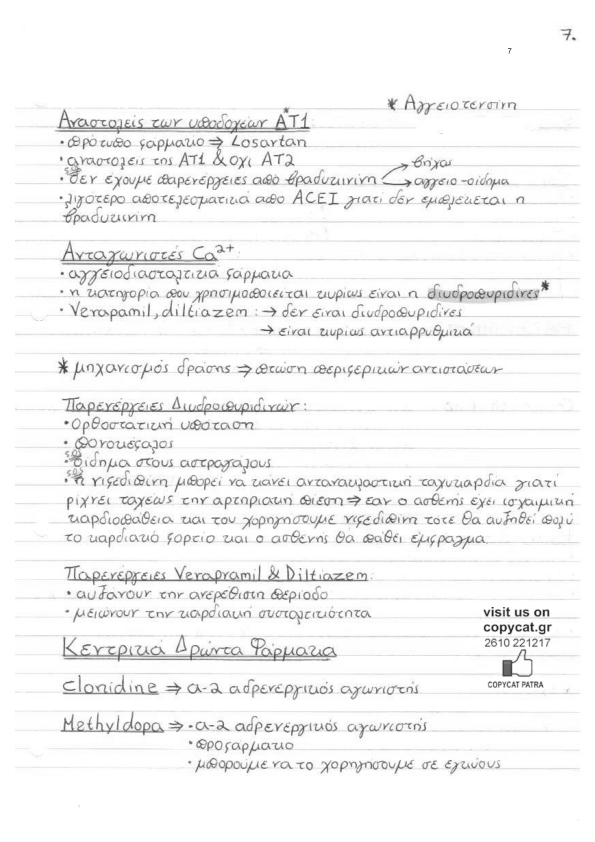 7.
7
* Αγγειοτενσίνη
Αναστολείς των υποδοχέων ΑΤ1*:
• πρότυπο φάρμακο ⇒ Losartan
• αναστολείς της ΑΤ1 & όχι ΑΤ2
SOS • δεν έχουμε παρενέργειες από βραδυκινίνη → βήχας
→ αγγειο-οίδημα
• λιγότερο αποτελεσματικά από ACEI γιατί δεν εμπλέκεται η
βραδυκινίνη
Ανταγωνιστές Ca²⁺:
• αγγειοδιασταλτικά φάρμακα
• η κατηγορία που χρησιμοποιείται κυρίως είναι η διυδροπυριδίνες*
• Verapamil, diltiazem : → δεν είναι διυδροπυριδίνες
→ είναι κυρίως αντιαρρυθμικά
* μηχανισμός δράσης ⇒ πτώση περιφερικών αντιστάσεων
Παρενέργειες Διυδροπυριδινών:
• Ορθοστατική υπόταση
• Πονοκέφαλος
SOS • Οίδημα στους αστραγάλους
SOS • η νιφεδιπίνη μπορεί να κάνει αντανακλαστική ταχυκαρδία γιατί
ρίχνει ταχέως την αρτηριακή πίεση ⇒ εάν ο ασθενής έχει ισχαιμική
καρδιοπάθεια και του χορηγήσουμε νιφεδιπίνη τότε θα αυξηθεί πολύ
το καρδιακό φορτίο και ο ασθενής θα πάθει έμφραγμα.
Παρενέργειες Verapramil & Diltiazem:
• αυξάνουν την ανερέθιστη περίοδο
• μειώνουν την καρδιακή συσταλτικότητα
visit us on
copycat.gr
2610 221217
COPYCAT PATRA
Κεντρικά Δρώντα Φάρμακα
Clonidine ⇒ α-2 αδρενεργικός αγωνιστής
Methyldopa ⇒ • α-2 αδρενεργικός αγωνιστής
• προφάρμακο
• μπορούμε να το χορηγήσουμε σε εγκύους